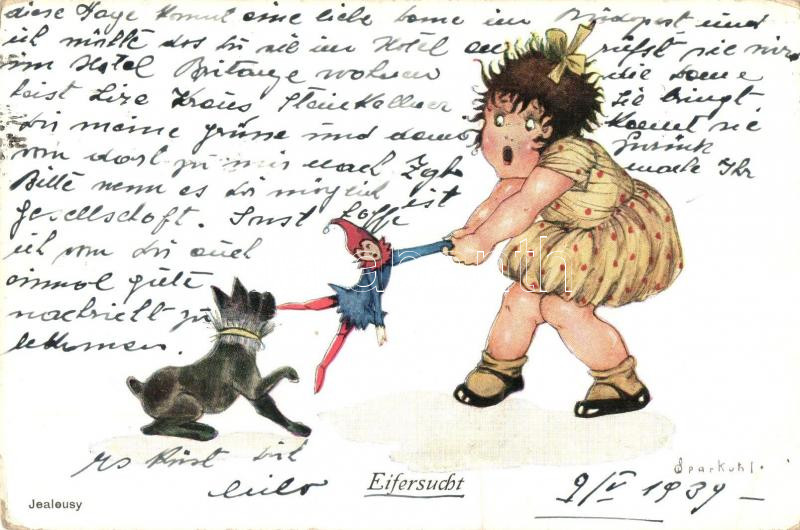 diese Tage kommt eine liebe Dame im Budapest und
ich möchte das du sie im Hotel an rufst sie wird
im Hotel Britange wohnen die Dame
heist Lize Kraus Steinkellner Sie bringt
dir meine grüsse und dann kommt sie
von dort zu mir nach Zgb Zurück
Bitte wenn es dir möglich ist mache Ihr
gesellschaft. Sonst hoffe
ich von dir auch
einmal gute
nachricht zu
bekommen.
es küsst dich
Sparkuhl.
Eifersucht
9/V 1939
Jealousy